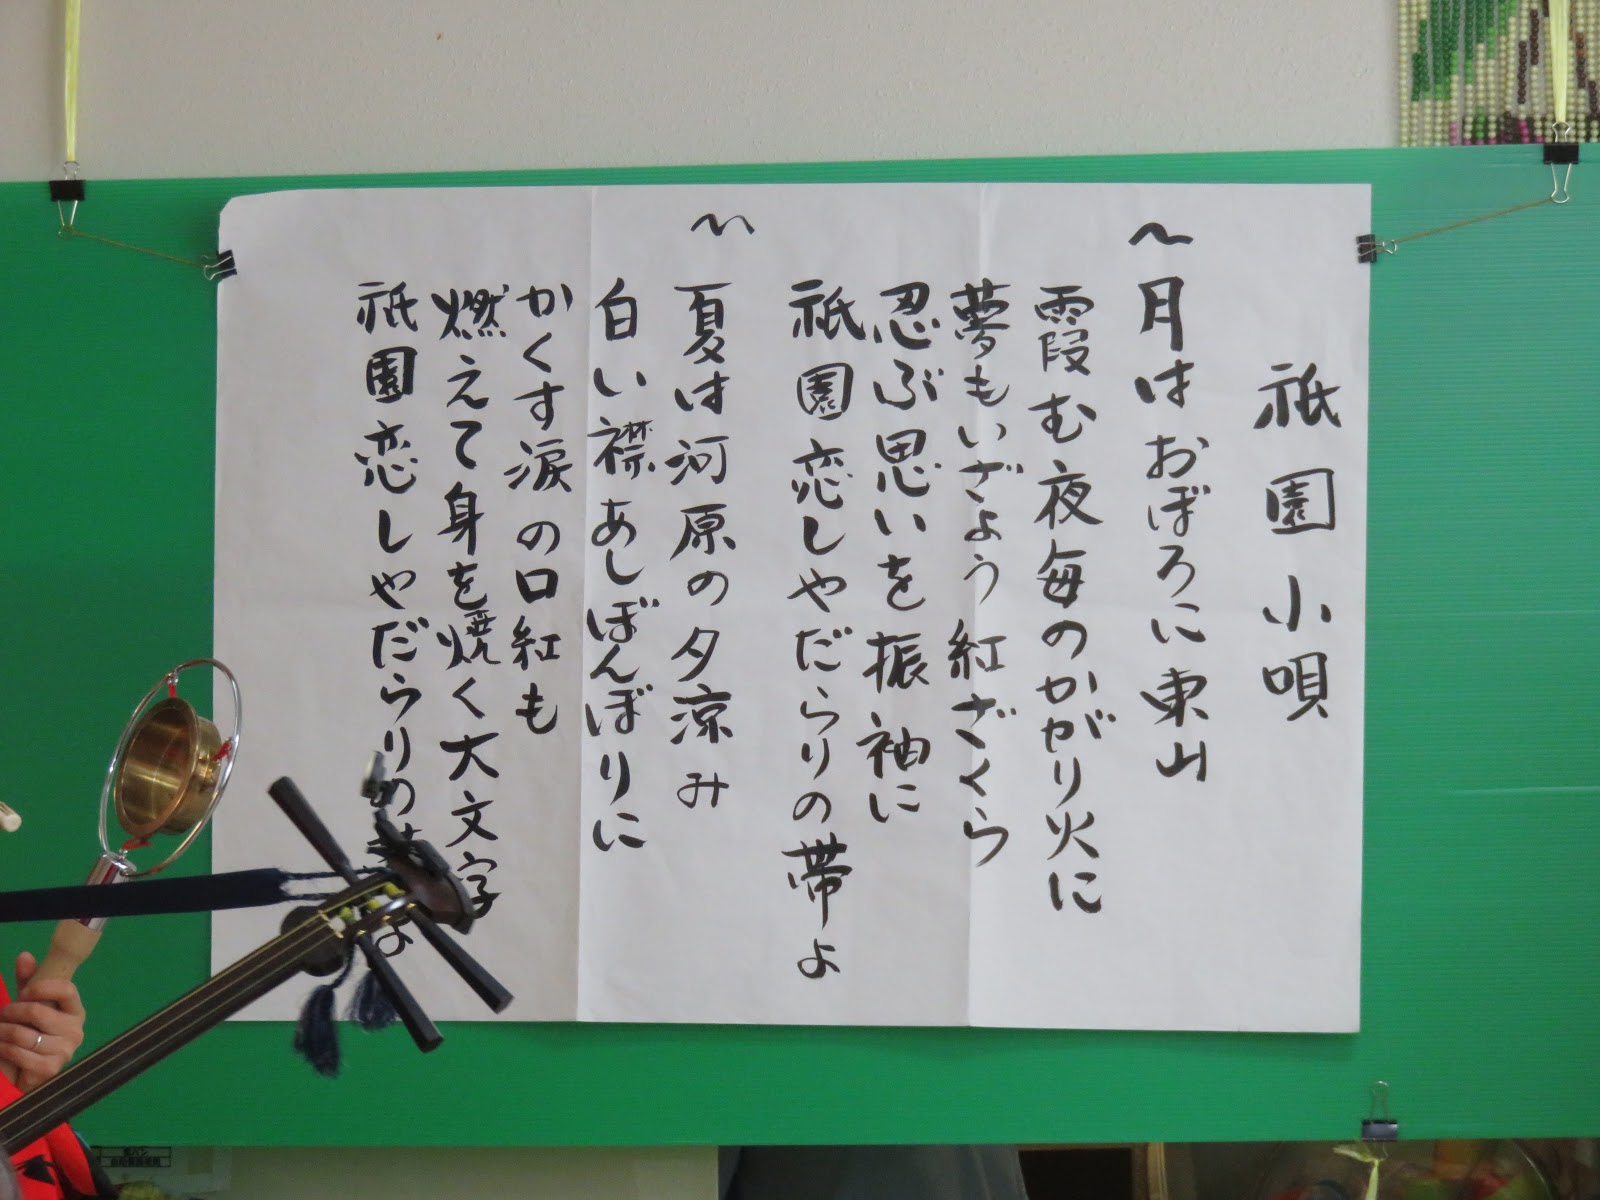 祇園小唄
〜月はおぼろに東山
霞む夜毎のかがり火に
夢もいざよう紅ざくら
忍ぶ思いを振袖に
祇園恋しやだらりの帯よ
〜
夏は河原の夕涼み
白い襟あしぼんぼりに
かくす涙の口紅も
燃えて身を焼く大文字
祇園恋しやだらりの帯よ